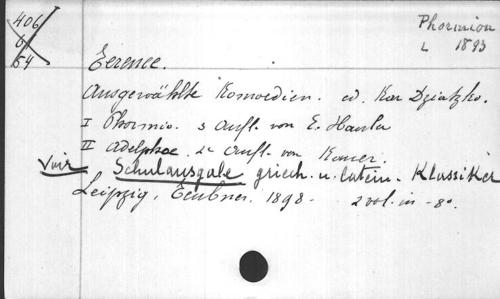 406
6
54
Phormion
L 1893
Terence.
Ausgewählte Komoedien. ed. Kar Dziatzko.
I Phormio. 3 Aufl. von E. Hauler
II Adelphoe. 2e Aufl. von Kauer.
Voir Schulausgabe griech. u. latein. Klassiker
Leipzig, Teubner. 1898. 2 vol. in-8º.